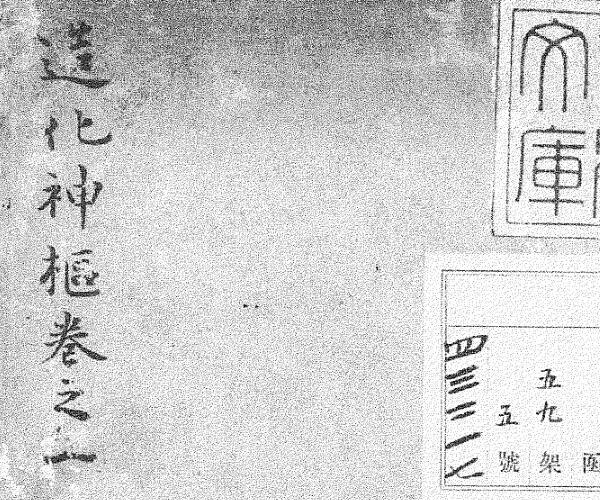 文庫
函
五九架
五號
四三二一七
造化神樞卷之